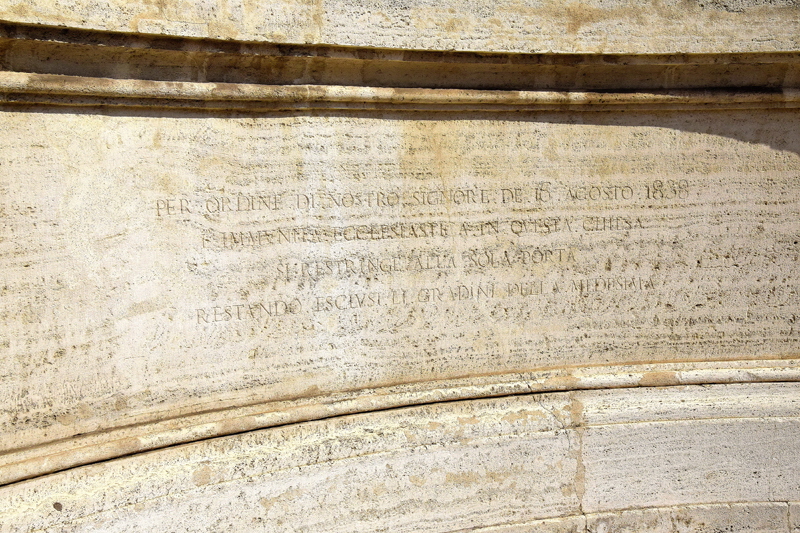 PER ORDINE DI NOSTRO SIGNORE DE 16 AGOSTO 1838
L'IMMUNITA ECCLESIASTICA IN QUESTA CHIESA
SI RESTRINGE ALLA SOLA PORTA
RESTANDO ESCLUSI LI GRADINI DELLA MEDESIMA